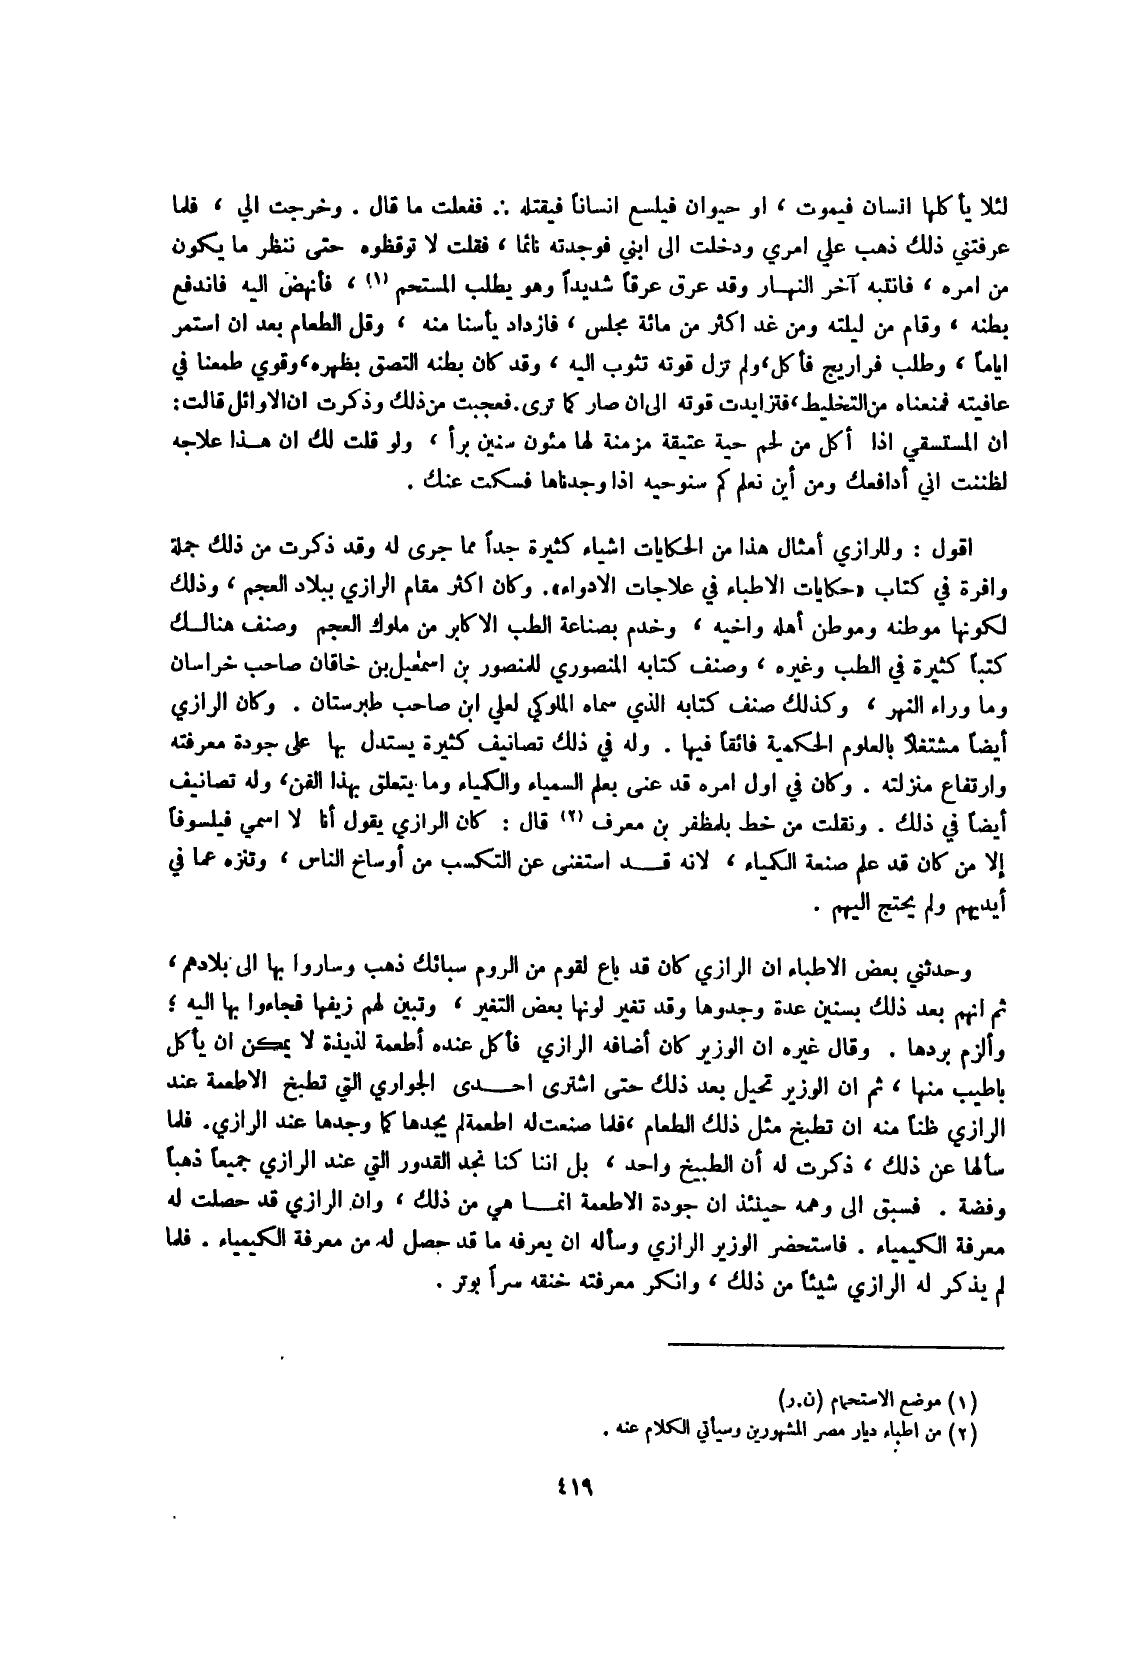 لئلا يأكلها انسان فيموت ، او حيوان فيلسع انساناً فيقتله ∴ ففعلت ما قال . وخرجت الي ، فلما
عرفتني ذلك ذهب علي امري ودخلت الى ابني فوجدته نائما ، فقلت لا توقظوه حتى ننظر ما يكون
من امره ، فانتبه آخر النهـار وقد عرق عرقاً شديداً وهو يطلب المستحم (١) ، فأنهض اليه فاندفع
بطنه ، وقام من ليلته ومن غد اكثر من مائة مجلس ، فازداد يأسنا منه ، وقل الطعام بعد ان استمر
اياماً ، وطلب فراريج فأكل،ولم تزل قوته تثوب اليه ، وقد كان بطنه التصق بظهره،وقوي طمعنا في
عافيته فمنعناه من التخليط،فتزايدت قوته الى ان صار كما ترى.فعجبت من ذلك وذكرت ان الاوائل قالت:
ان المستسقي اذا أكل من لحم حية عتيقة مزمنة لها مئون سنين برأ ، ولو قلت لك ان هـذا علاجه
لظننت اني أدافعك ومن أين نعلم كم سنوحيه اذا وجدناها فسكت عنك .
اقول : وللرازي أمثال هذا من الحكايات اشياء كثيرة جداً مما جرى له وقد ذكرت من ذلك جملة
وافرة في كتاب «حكايات الاطباء في علاجات الادواء». وكان اكثر مقام الرازي ببلاد العجم ، وذلك
لكونها موطنه وموطن أهله واخيه ، وخدم بصناعة الطب الاكابر من ملوك العجم وصنف هنالـك
كتباً كثيرة في الطب وغيره ، وصنف كتابه المنصوري للمنصور بن اسمٰعيل بن خاقان صاحب خراسان
وما وراء النهر ، وكذلك صنف كتابه الذي سماه الملوكي لعلي ابن صاحب طبرستان . وكان الرازي
أيضاً مشتغلاً بالعلوم الحكمية فائقاً فيها . وله في ذلك تصانيف كثيرة يستدل بها على جودة معرفته
وارتفاع منزلته . وكان في اول امره قد عنى بعلم السمياء والكمياء وما يتعلق بهذا الفن، وله تصانيف
أيضاً في ذلك . ونقلت من خط بلمظفر بن معرف (٢) قال : كان الرازي يقول أنا لا اسمي فيلسوفاً
إلا من كان قد علم صنعة الكمياء ، لانه قـــد استغنى عن التكسب من أوساخ الناس ، وتنزه عما في
أيديهم ولم يحتج اليهم .
وحدثني بعض الاطباء ان الرازي كان قد باع لقوم من الروم سبائك ذهب وساروا بها الى بلادهم ،
ثم انهم بعد ذلك بسنين عدة وجدوها وقد تغير لونها بعض التغير ، وتبين لهم زيفها فجاءوا بها اليه ؛
وألزم بردها . وقال غيره ان الوزير كان أضافه الرازي فأكل عنده أطعمة لذيذة لا يمكن ان يأكل
باطيب منها ، ثم ان الوزير تحيل بعد ذلك حتى اشترى احـــدى الجواري التي تطبخ الاطعمة عند
الرازي ظناً منه ان تطبخ مثل ذلك الطعام ،فلما صنعت له اطعمة لم يجدها كما وجدها عند الرازي. فلما
سألها عن ذلك ، ذكرت له أن الطبيخ واحد ، بل اننا كنا نجد القدور التي عند الرازي جميعاً ذهباً
وفضة . فسبق الى وهمه حينئذ ان جودة الاطعمة انمـــا هي من ذلك ، وان الرازي قد حصلت له
معرفة الكيمياء . فاستحضر الوزير الرازي وسأله ان يعرفه ما قد حصل له من معرفة الكيمياء . فلما
لم يذكر له الرازي شيئاً من ذلك ، وانكر معرفته خنقه سراً بوتر .
(١) موضع الاستحمام (ن.ر)
(٢) من اطباء ديار مصر المشهورين وسيأتي الكلام عنه .
٤١٩